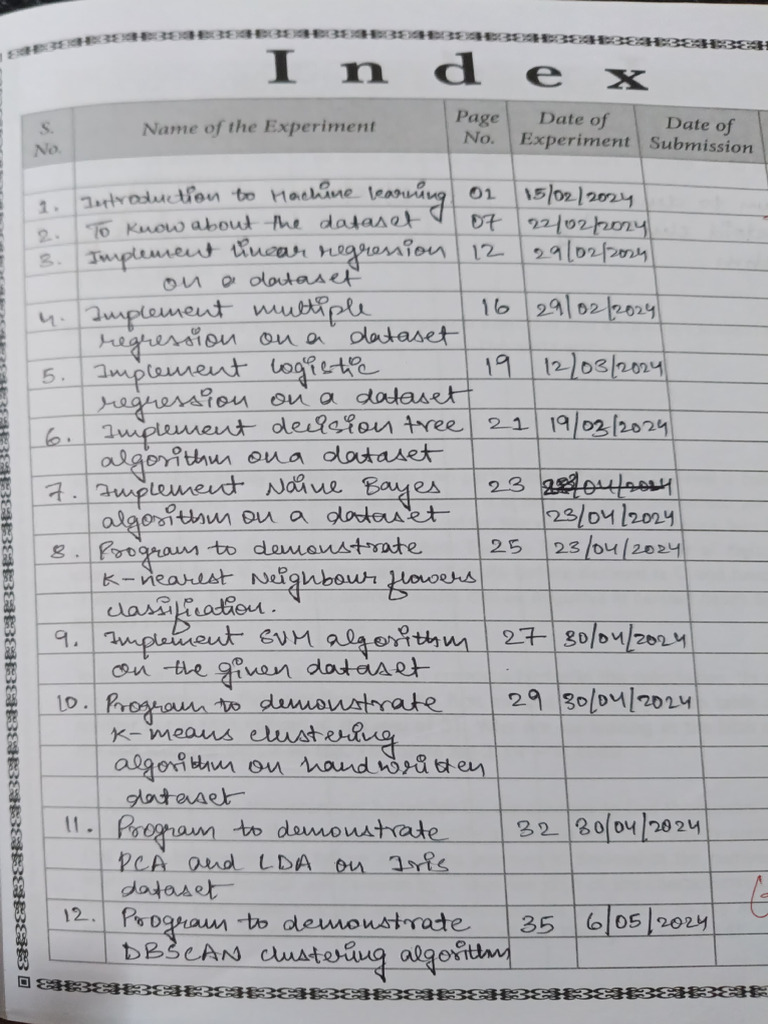 Index
S. No. Name of the Experiment Page No. Date of Experiment Date of Submission
1. Introduction to Machine learning 01 15/02/2024
2. To Know about the dataset 07 22/02/2024
3. Implement linear regression 12 29/02/2024
on a dataset
4. Implement multiple 16 29/02/2024
regression on a dataset
5. Implement logistic 19 12/03/2024
regression on a dataset
6. Implement decision tree 21 19/03/2024
algorithm on a dataset
7. Implement Naive Bayes 23
algorithm on a dataset 23/04/2024
8. Program to demonstrate 25 23/04/2024
K-nearest Neighbour flowers
classification.
9. Implement SVM algorithm 27 30/04/2024
on the given dataset
10. Program to demonstrate 29 30/04/2024
K-means clustering
algorithm on handwritten
dataset
11. Program to demonstrate 32 30/04/2024
PCA and LDA on Iris
dataset
12. Program to demonstrate 35 6/05/2024
DBSCAN clustering algorithm